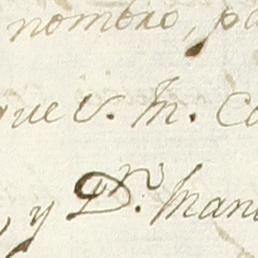 nombro, pa
que V. M. Co
y D.n Man